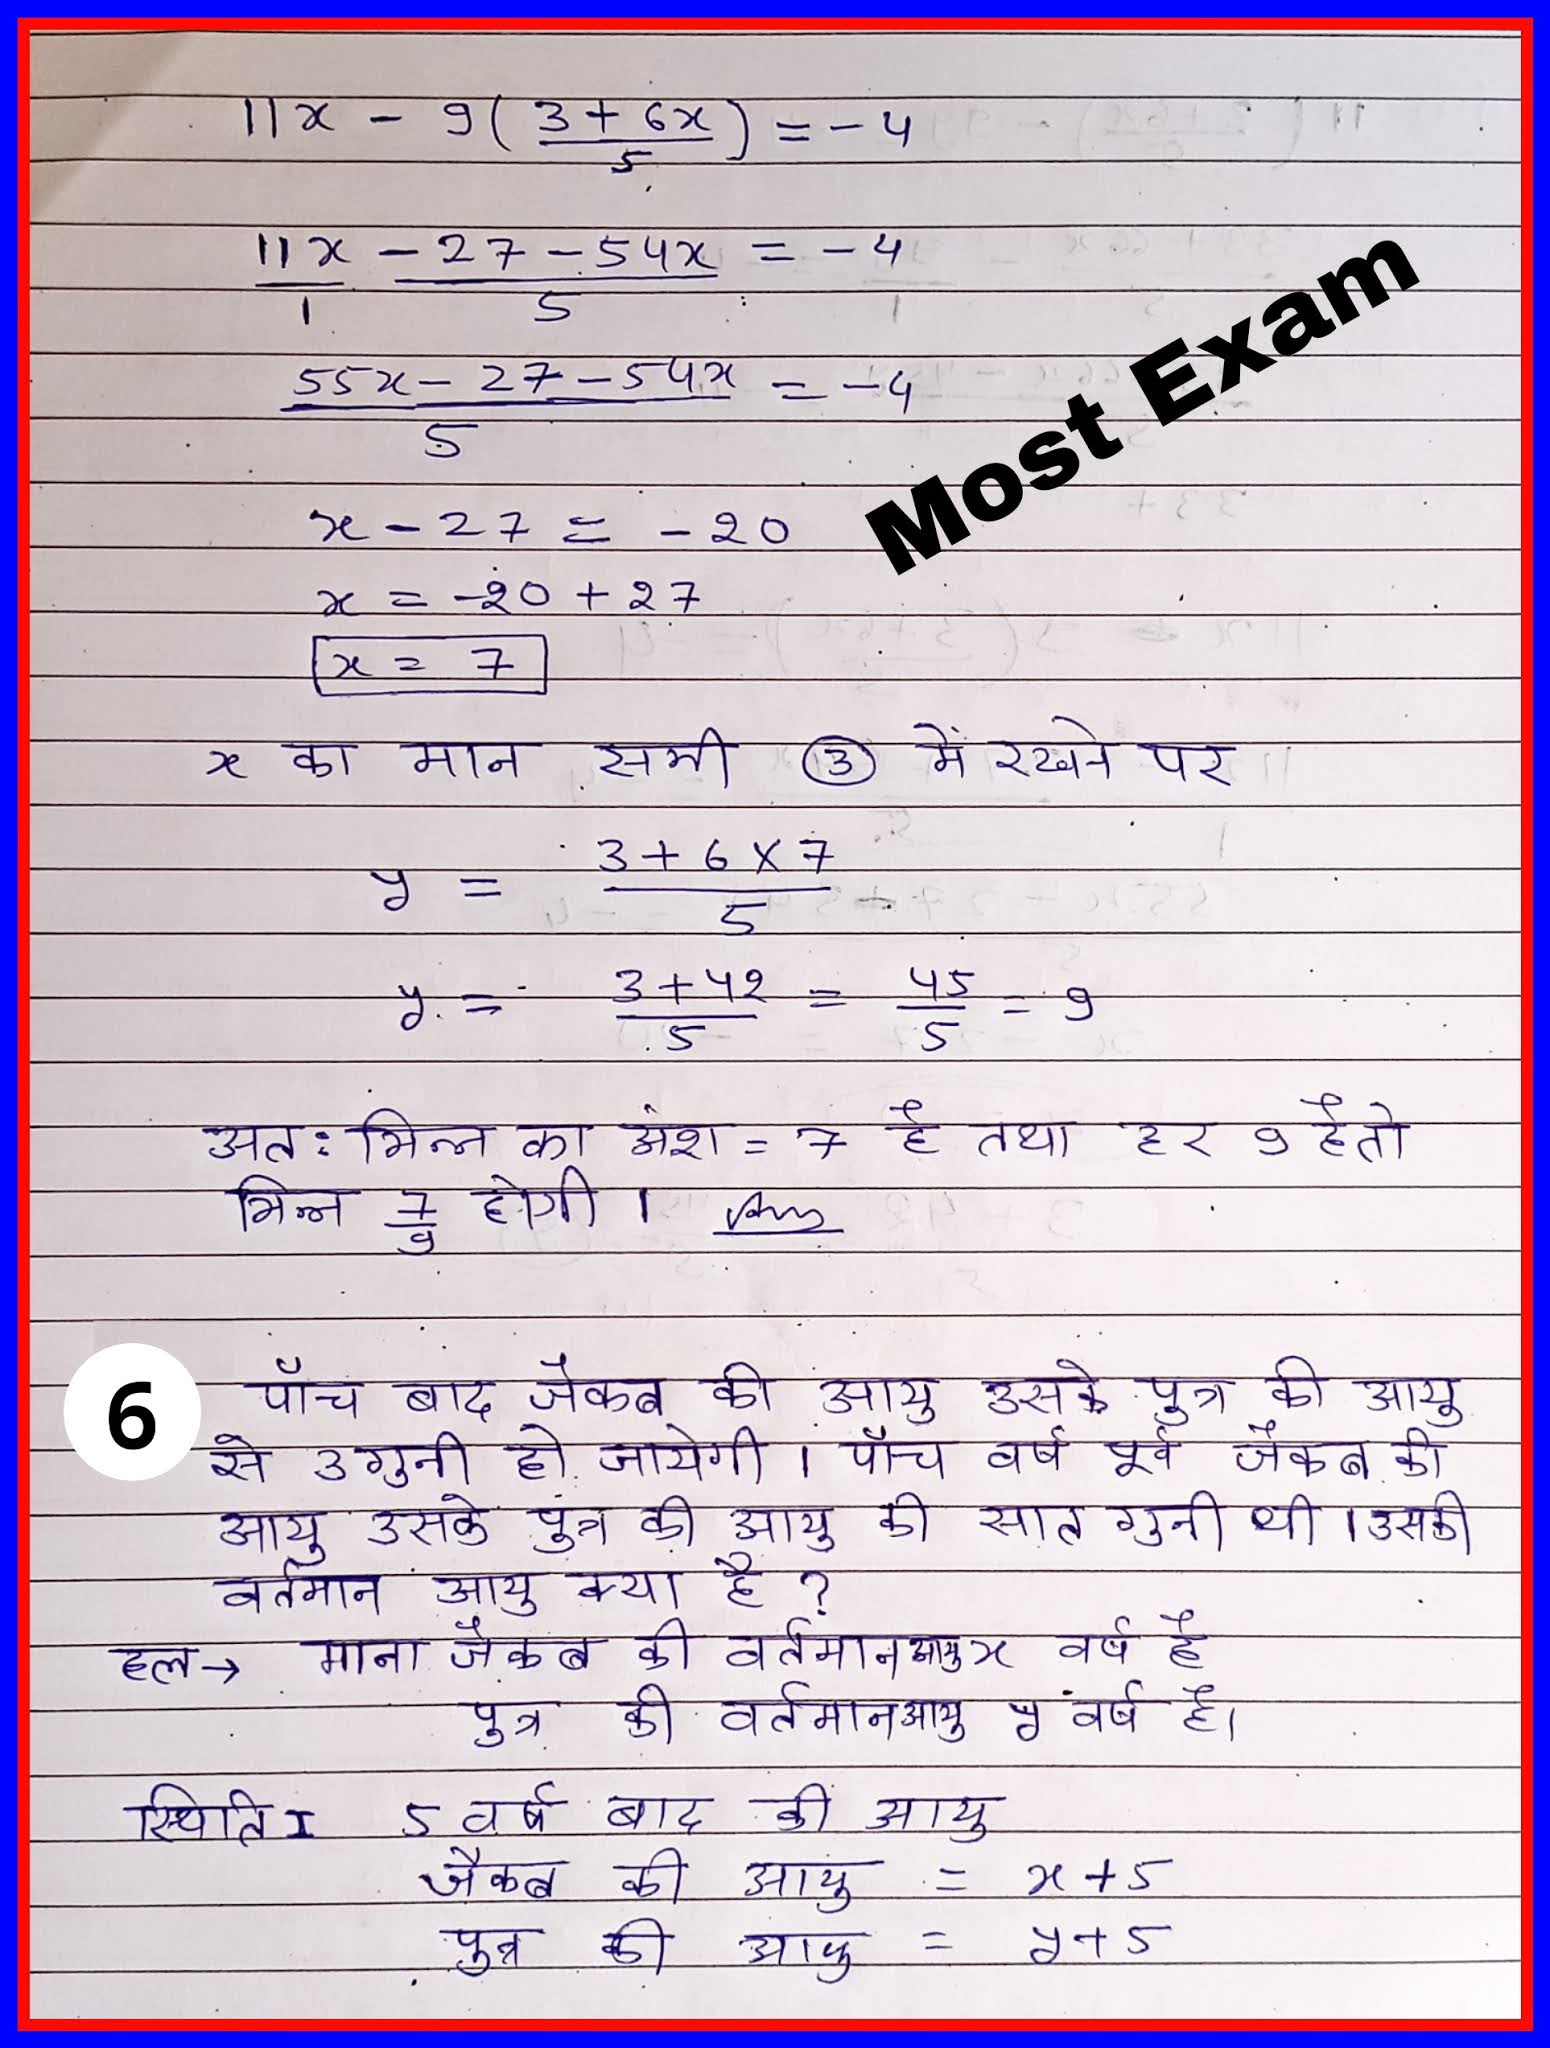 11x - 9(3+6x/5) = -4
11x/1 - 27 - 54x/5 = -4
55x - 27 - 54x/5 = -4
Most Exam
x - 27 = -20
x = -20 + 27
x = 7
x का मान समी ③ में रखने पर
y = 3+6×7/5
y = 3+42/5 = 45/5 = 9
अतः भिन्न का अंश = 7 है तथा हर 9 है तो
भिन्न 7/9 होगी । Ans
6 पाँच बाद जैकब की आयु उसके पुत्र की आयु
से 3 गुनी हो जायेगी । पाँच वर्ष पूर्व जैकब की
आयु उसके पुत्र की आयु की सात गुनी थी । उसकी
वर्तमान आयु क्या है ?
हल → माना जैकब की वर्तमान आयु x वर्ष है
पुत्र की वर्तमान आयु y वर्ष है।
स्थिति I 5 वर्ष बाद की आयु
जैकब की आयु = x+5
पुत्र की आयु = y+5